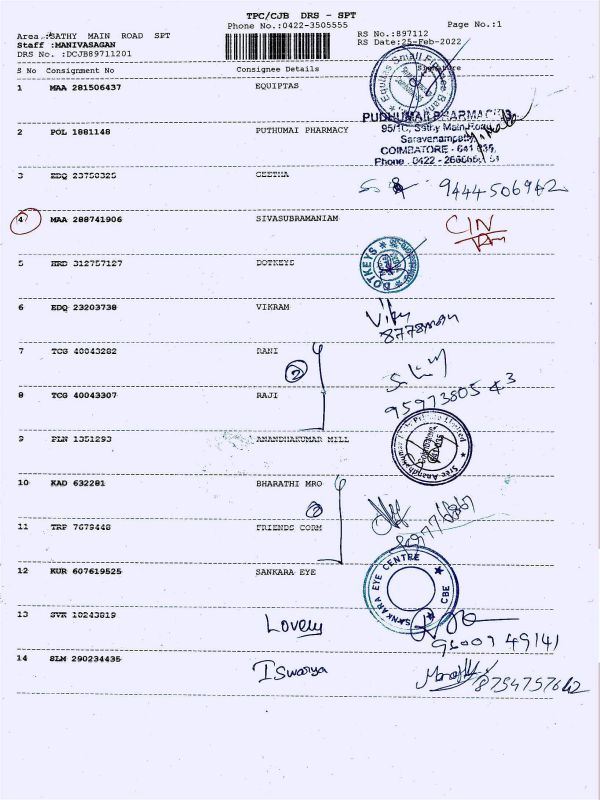 TPC/CJB DRS - SPT
Phone No.:0422-3505555
Page No.:1
Area :SATHY MAIN ROAD SPT
Staff :MANIVASAGAN
DRS No. :DCJB89711201
RS No.:897112
RS Date:25-Feb-2022
S No Consignment No Consignee Details Signature
1 MAA 281506437 EQUIPTAS
Equitas Small Finance Bank
PUDHUMAI PHARMACY
95/1C, Sathy Main Road
Saravanampatty
COIMBATORE - 641 035
Phone : 0422 -
2 POL 1881148 PUTHUMAI PHARMACY
3 EDQ 23750325 GEETHA
9444506942
4 MAA 288741906 SIVASUBRAMANIAM
CIN
5 HRD 312757127 DOTKEYS
DOTKEYS
6 EDQ 23203738 VIKRAM
7 TCG 40043282 RANI
2
8 TCG 40043307 RAJI
9597380543
9 PLN 1351293 ANANDHAKUMAR MILL
Sree Anandhakumar Mills Private Limited
10 KAD 632281 BHARATHI MRO
11 TRP 7679448 FRIENDS CORM
12 KUR 607619525 SANKARA EYE
SANKARA EYE CENTRE CBE
13 SVK 10243819 Lovely
9600949141
14 SLM 290234435 Iswarya
8754757642